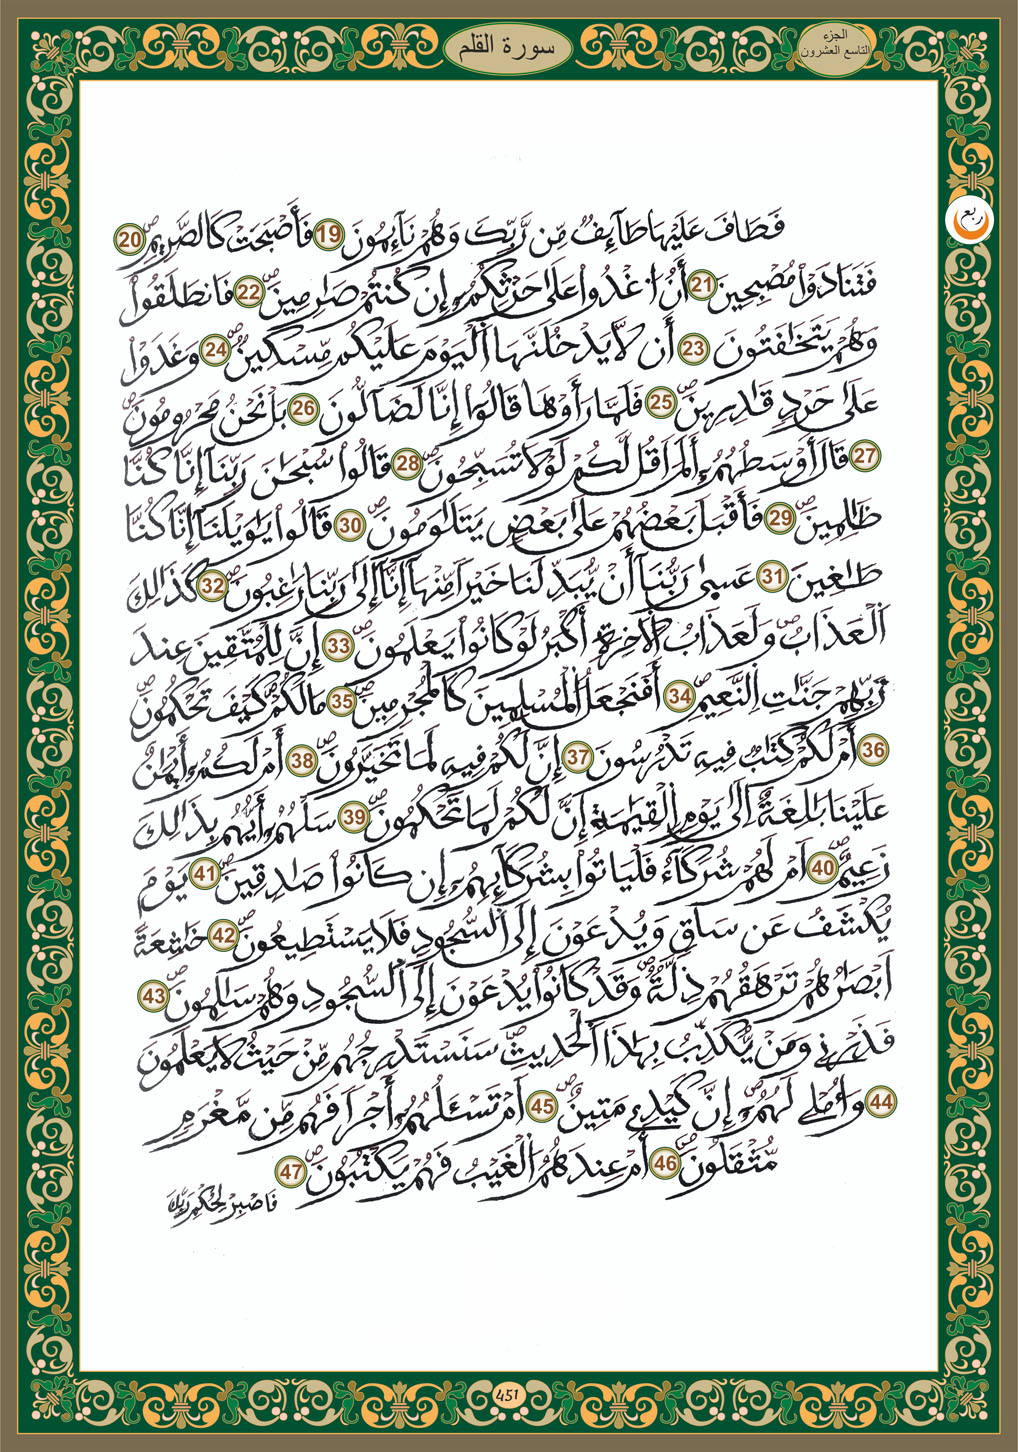 سورة القلم
الجزء
التاسع العشرون
ربع
فَطَافَ عَلَيْهَا طَآئِفٌ مِّن رَّبِّكَ وَهُمْ نَآئِمُونَ 19 فَأَصْبَحَتْ كَالصَّرِيمِ صـ 20
فَتَنَادَوْا مُصْبِحِينَ 21 أَنُ اغْدُوا عَلَىٰ حَرْثِكُمُ إِن كُنتُمْ صَٰرِمِينَ صـ 22 فَانطَلَقُوا
وَهُمْ يَتَخَٰفَتُونَ 23 أَن لَّا يَدْخُلَنَّهَا اَلْيَوْمَ عَلَيْكُم مِّسْكِينٌ صـ 24 وَغَدَوْا
عَلَىٰ حَرْدٍ قَٰدِرِينَ صـ 25 فَلَمَّا رَأَوْهَا قَالُوا إِنَّا لَضَآلُّونَ صـ 26 بَلْ نَحْنُ مَحْرُومُونَ صـ
27 قَالَ أَوْسَطُهُمُ أَلَمَ اَقُل لَّكُمْ لَوْلَا تُسَبِّحُونَ صـ 28 قَالُوا سُبْحَٰنَ رَبِّنَا إِنَّا كُنَّا
ظَٰلِمِينَ صـ 29 فَأَقْبَلَ بَعْضُهُمْ عَلَىٰ بَعْضٍ يَتَلَٰوَمُونَ صـ 30 قَالُوا يَٰوَيْلَنَا إِنَّا كُنَّا
طَٰغِينَ 31 عَسَىٰ رَبُّنَا أَنْ يُّبَدِّلَنَا خَيْراً مِّنْهَا إِنَّا إِلَىٰ رَبِّنَا رَٰغِبُونَ صـ 32 كَذَٰلِكَ
اَلْعَذَابُ صـ وَلَعَذَابُ اُلَاخِرَةِ أَكْبَرُ لَوْ كَانُوا يَعْلَمُونَ صـ 33 إِنَّ لِلْمُتَّقِينَ عِندَ
رَبِّهِمْ جَنَّٰتِ اِلنَّعِيمِ صـ 34 أَفَنَجْعَلُ اُلْمُسْلِمِينَ كَالْمُجْرِمِينَ صـ 35 مَا لَكُمْ كَيْفَ تَحْكُمُونَ صـ
36 أَمْ لَكُمْ كِتَٰبٌ فِيهِ تَدْرُسُونَ 37 إِنَّ لَكُمْ فِيهِ لَمَا تَخَيَّرُونَ صـ 38 أَمْ لَكُمُ أَيْمَٰنٌ
عَلَيْنَا بَٰلِغَةٌ اِلَىٰ يَوْمِ اِلْقِيَٰمَةِ إِنَّ لَكُمْ لَمَا تَحْكُمُونَ صـ 39 سَلْهُمُ أَيُّهُم بِذَٰلِكَ
زَعِيمٌ صـ 40 اَمْ لَهُمْ شُرَكَآءُ فَلْيَاتُوا بِشُرَكَآئِهِمُ إِن كَانُوا صَٰدِقِينَ صـ 41 يَوْمَ
يُكْشَفُ عَن سَاقٍ وَيُدْعَوْنَ إِلَى اَلسُّجُودِ فَلَا يَسْتَطِيعُونَ صـ 42 خَٰشِعَةً
اَبْصَٰرُهُمْ تَرْهَقُهُمْ ذِلَّةٌ صـ وَقَدْ كَانُوا يُدْعَوْنَ إِلَى اَلسُّجُودِ وَهُمْ سَٰلِمُونَ صـ 43
فَذَرْنِي وَمَنْ يُّكَذِّبُ بِهَٰذَا اَلْحَدِيثِ صـ سَنَسْتَدْرِجُهُم مِّنْ حَيْثُ لَا يَعْلَمُونَ
44 وَأُمْلِي لَهُمُ صـ إِنَّ كَيْدِي مَتِينٌ صـ 45 اَمْ تَسْـَٔلُهُمُ أَجْراً فَهُم مِّن مَّغْرَمٍ
مُّثْقَلُونَ صـ 46 أَمْ عِندَهُمُ اُلْغَيْبُ فَهُمْ يَكْتُبُونَ صـ 47
فَاصْبِرْ لِحُكْمِ رَبِّكَ
451